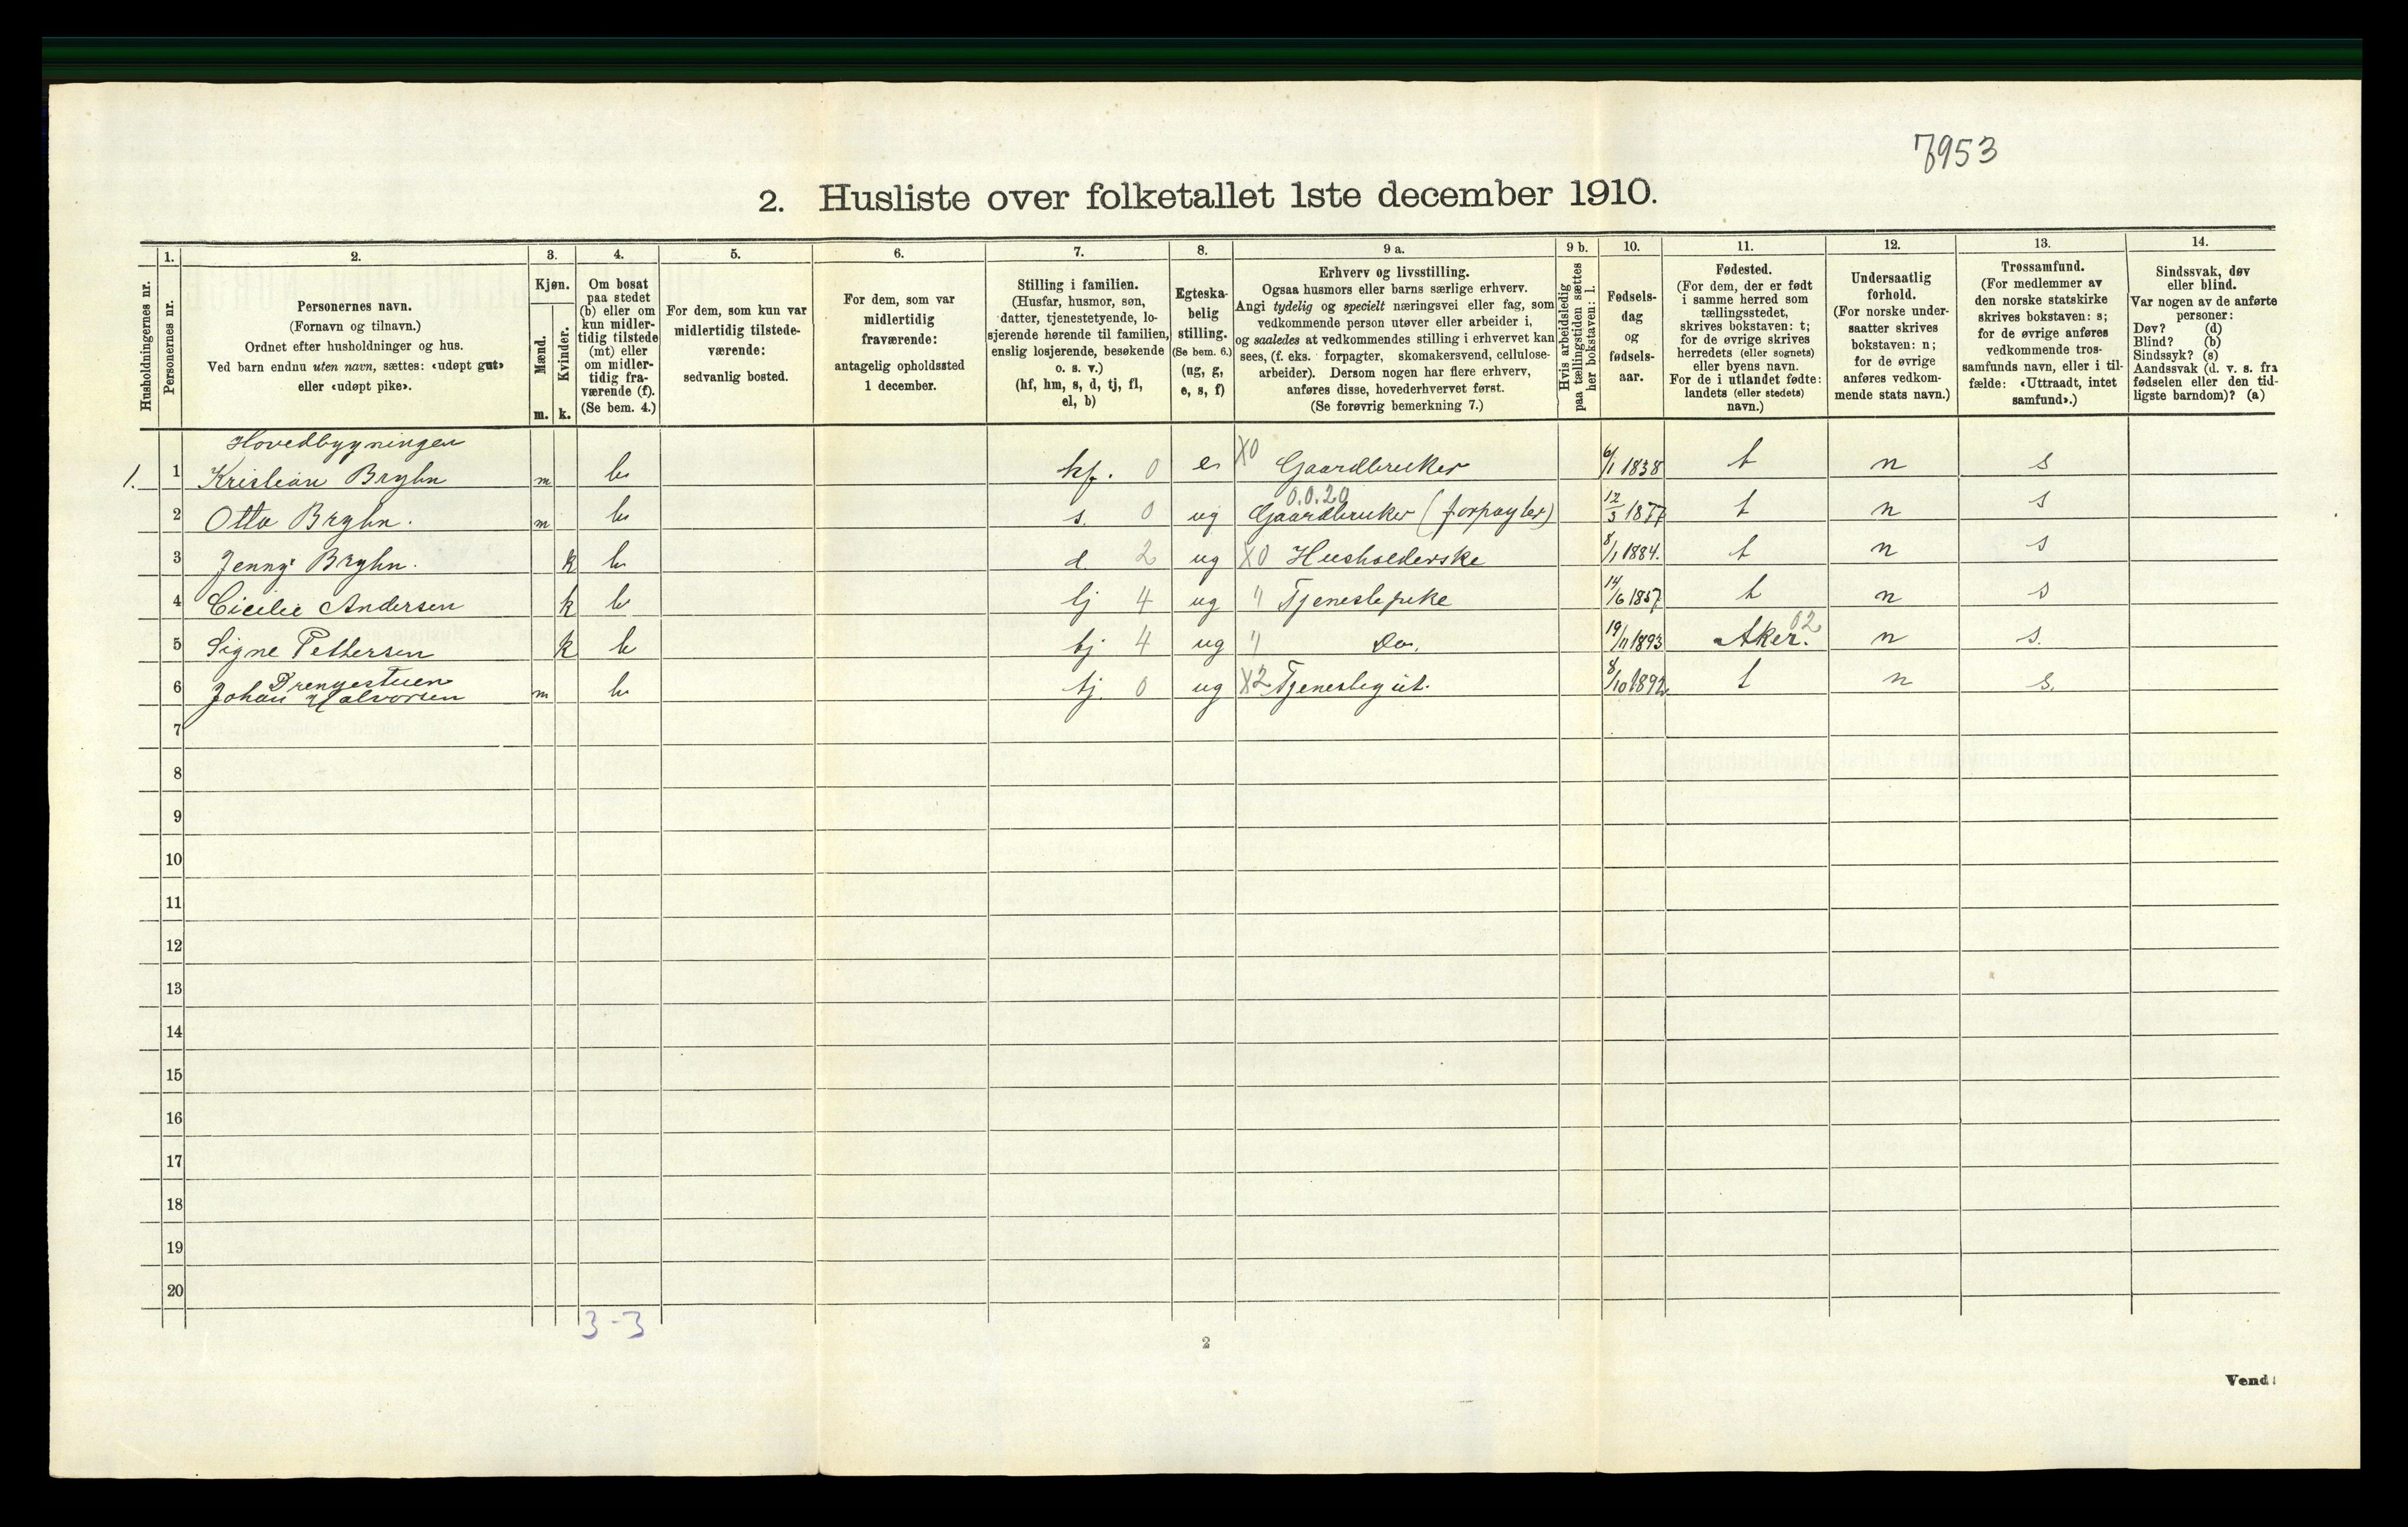 7953
2. Husliste over folketallet 1ste december 1910.
Husholdningernes nr.
1.
Personernes nr.
2.
Personernes navn.
(Fornavn og tilnavn.)
Ordnet efter husholdninger og hus.
Ved barn endnu uten navn, sættes: «udøpt gut»
eller «udøpt pike».
3.
Kjøn.
Mænd.
m.
Kvinder.
k.
4.
Om bosat
paa stedet
(b) eller om
kun midler-
tidig tilstede
(mt) eller
om midler-
tidig fra-
værende (f).
(Se bem. 4.)
5.
For dem, som kun var
midlertidig tilstede-
værende:
sedvanlig bosted.
6.
For dem, som var
midlertidig
fraværende:
antagelig opholdssted
1 december.
7.
Stilling i familien.
(Husfar, husmor, søn,
datter, tjenestetyende, lo-
sjerende hørende til familien,
enslig losjerende, besøkende
o. s. v.)
(hf, hm, s, d, tj, fl,
el, b)
8.
Egteska-
belig
stilling.
(Se bem. 6.)
(ug, g,
e, s, f)
9 a.
Erhverv og livsstilling.
Ogsaa husmors eller barns særlige erhverv.
Angi tydelig og specielt næringsvei eller fag, som
vedkommende person utøver eller arbeider i,
og saaledes at vedkommendes stilling i erhvervet kan
sees, (f. eks. forpagter, skomakersvend, cellulose-
arbeider). Dersom nogen har flere erhverv,
anføres disse, hovederhvervet først.
(Se forøvrig bemerkning 7.)
9 b.
Hvis arbeidsledig
paa tællingstiden sættes
her bokstaven: l.
10.
Fødsels-
dag
og
fødsels-
aar.
11.
Fødested.
(For dem, der er født
i samme herred som
tællingsstedet,
skrives bokstaven: t;
for de øvrige skrives
herredets (eller sognets)
eller byens navn.
For de i utlandet fødte:
landets (eller stedets)
navn.)
12.
Undersaatlig
forhold.
(For norske under-
saatter skrives
bokstaven: n;
for de øvrige
anføres vedkom-
mende stats navn.)
13.
Trossamfund.
(For medlemmer av
den norske statskirke
skrives bokstaven: s;
for de øvrige anføres
vedkommende tros-
samfunds navn, eller i til-
fælde: «Uttraadt, intet
samfund».)
14.
Sindssvak, døv
eller blind.
Var nogen av de anførte
personer:
Døv? (d)
Blind? (b)
Sindssyk? (s)
Aandssvak (d. v. s. fra
fødselen eller den tid-
ligste barndom)? (a)
Hovedbygningen
1. 1 Kristian Bryhn m b hf. 0 e X0 Gaardbruker 6/1 1838 t n s
0.0.20
2 Otto Bryhn. m b s. 0 ug Gaardbruker (forpagter) 12/3 1877 t n s
3 Jenny Bryhn. k b d 2 ug X0 Husholderske 8/1 1884. t n s
4 Cicilie Andersen k b tj 4 ug " Tjenestepike 14/6 1857 t n s
02
5 Signe Pettersen k b tj 4 ug " Do. 19/11 1893 Aker. n s.
Drengestuen
6 Johan Halvorsen m b tj. 0 ug X2 Tjenestegut. 8/10 1892 t n s.
7
8
9
10
11
12
13
14
15
16
17
18
19
20
3-3
2
Vend!